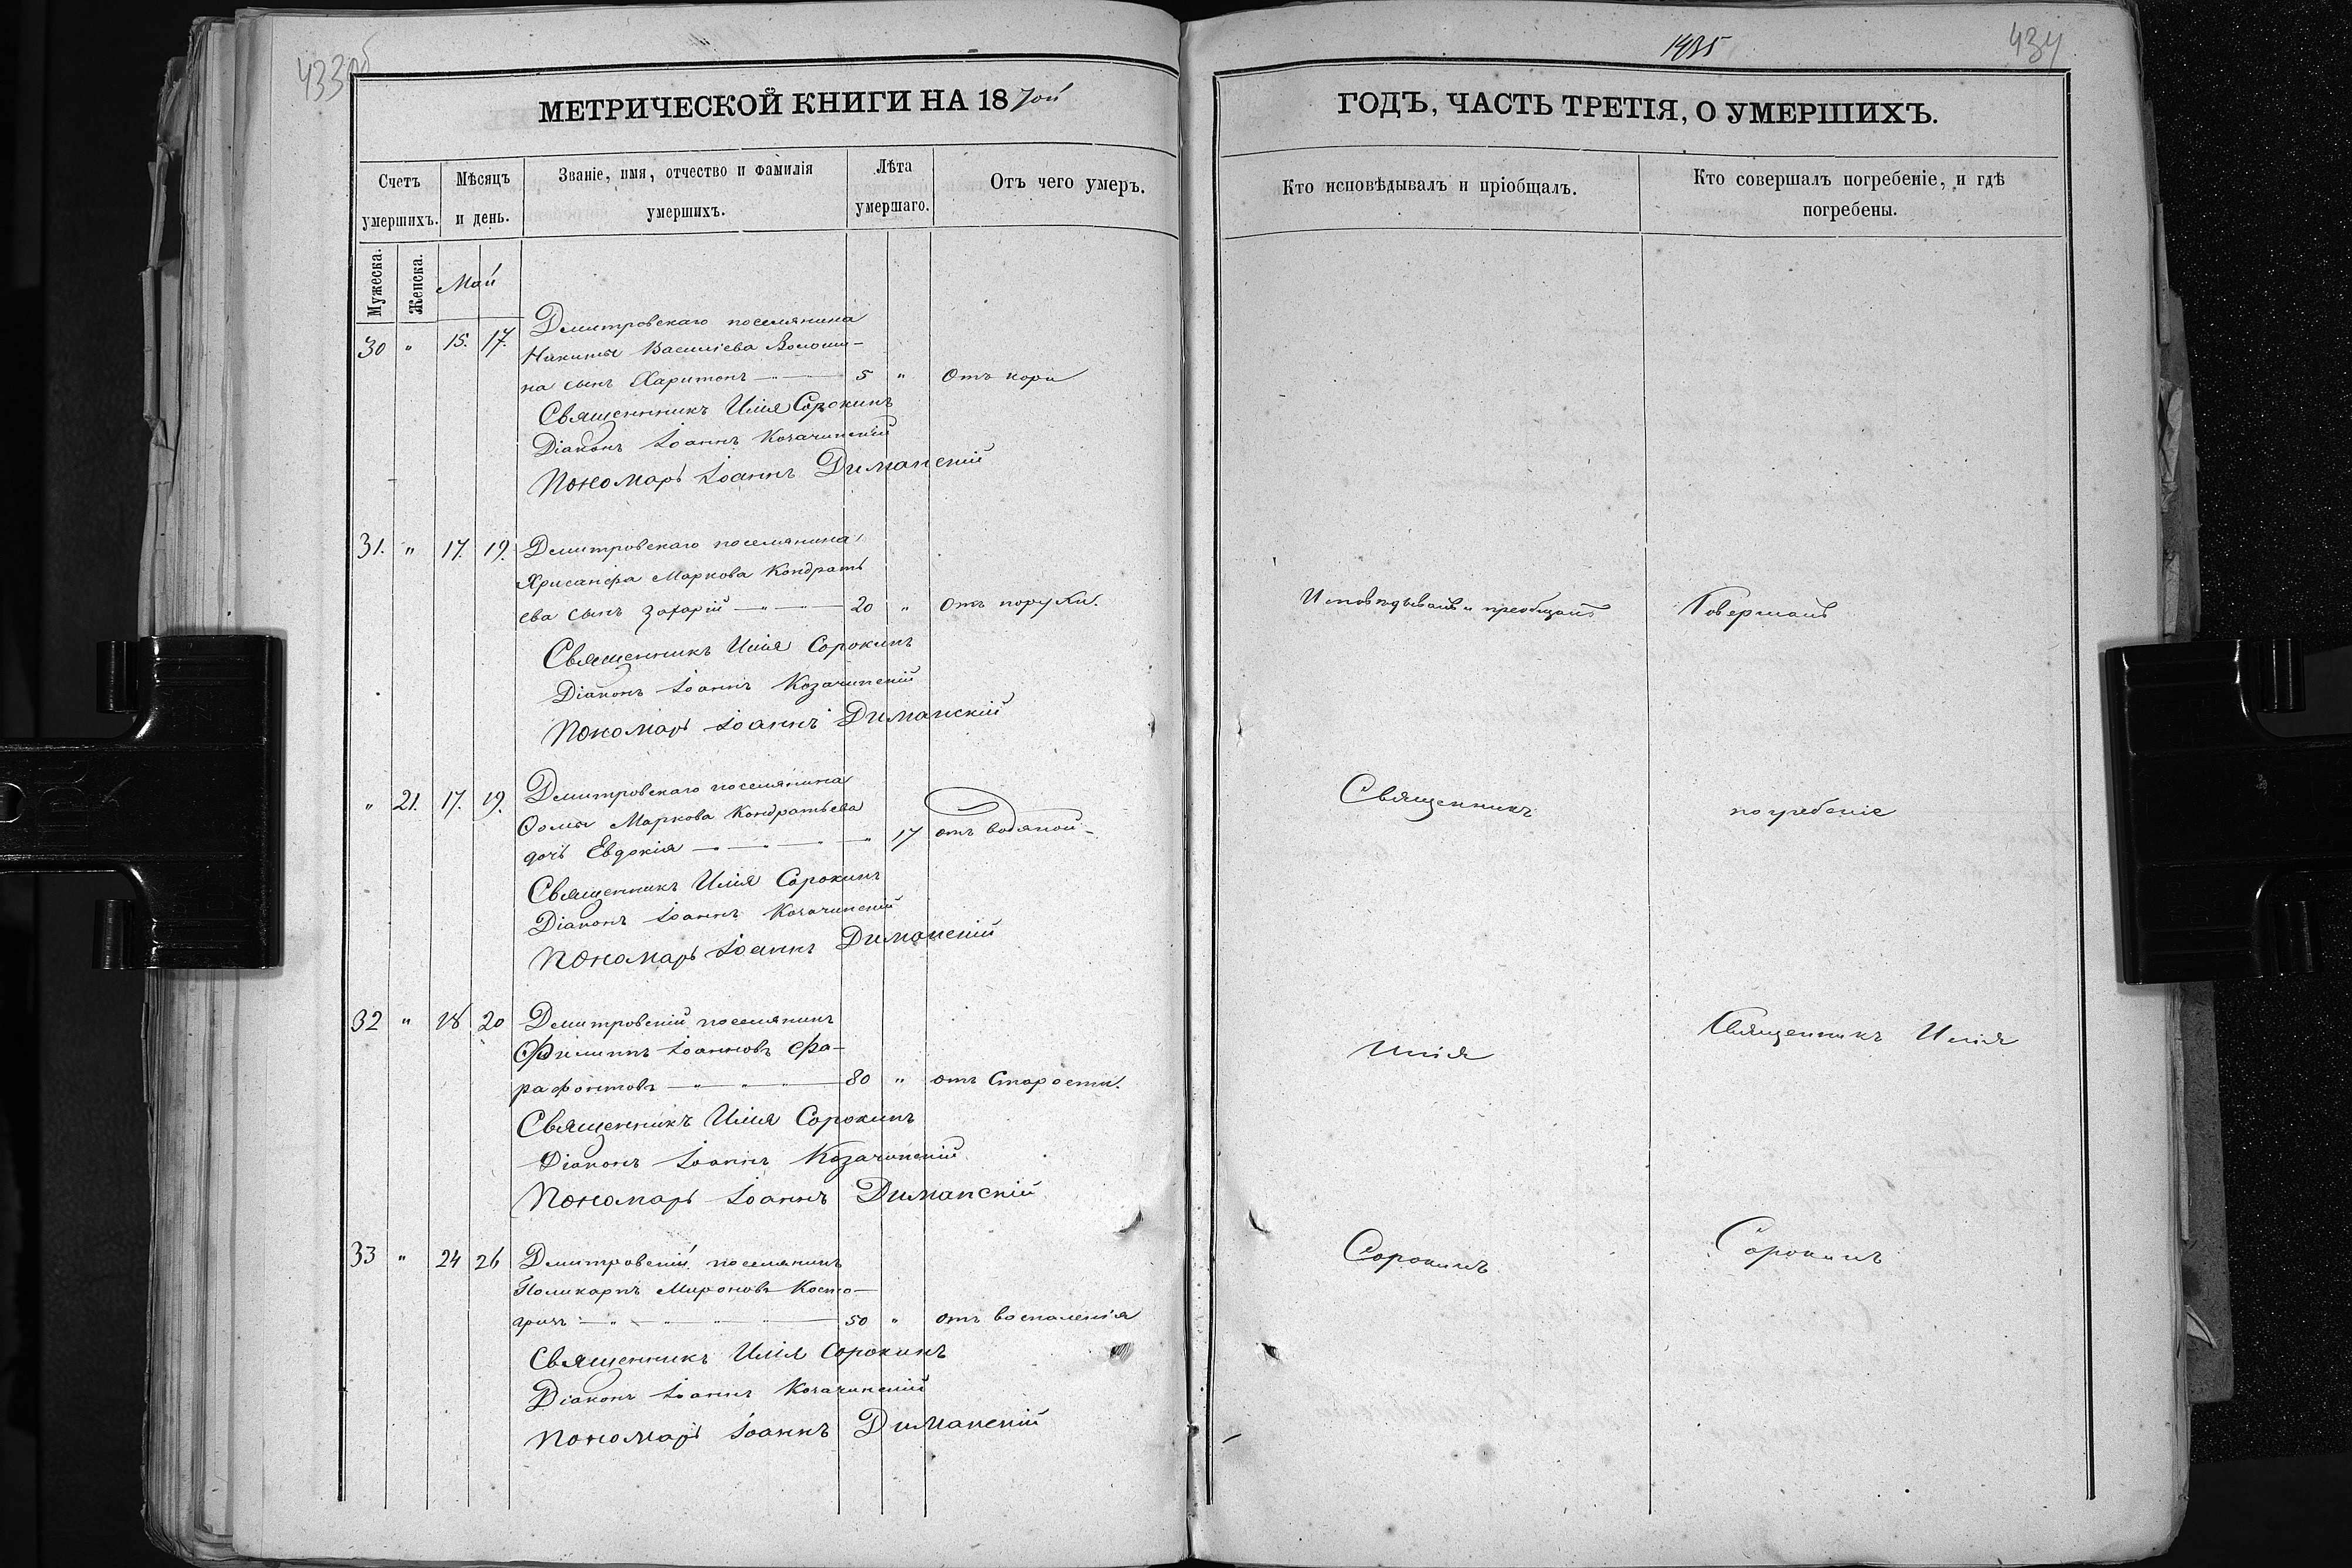 433об
МЕТРИЧЕСКОЙ КНИГИ НА 1870й
Счетъ умершихъ.
Мѣсяцъ и день.
Званіе, имя, отчество и фамилія умершихъ.
Лѣта умершаго.
Отъ чего умеръ.
Мужеска.
Женска.
Май
30 " 15. 17. Дмитровскаго поселянина
Никиты Василіева Волоши-
на сынъ Харитонъ 5 " Отъ кори
Священникъ Илія Сорокинъ
Діаконъ Іоаннъ Козачинскій
Пономарь Іоаннъ Диманскій
31. " 17. 19. Дмитровскаго поселянина
Хрисанфа Маркова Кондрать
ева сынъ Захарій 20 " Отъ
Священникъ Илія Сорокинъ
Діаконъ Іоаннъ Козачинскій
Пономарь Іоаннъ Диманскій
" 21. 17. 19. Дмитровскаго поселянина
Ѳомы Маркова Кондратьева
дочь Евдокія " 17 отъ водяной
Священникъ Илія Сорокинъ
Діаконъ Іоаннъ Козачинскій
Пономарь Іоаннъ Диманскій
32 " 18 20 Дмитровскій поселянинъ
Филиппъ Іоанновъ Фа-
рафонтовъ 80 " отъ Старости.
Священникъ Илія Сорокинъ
Діаконъ Іоаннъ Козачинскій
Пономарь Іоаннъ Диманскій
33 " 24 26 Дмитровскій поселянинъ
Поликарпъ Мироновъ Косто-
гризъ 50 " отъ воспаленія
Священникъ Илія Сорокинъ
Діаконъ Іоаннъ Козачинскій
Пономарь Іоаннъ Диманскій
434
ГОДЪ, ЧАСТЬ ТРЕТІЯ, О УМЕРШИХЪ.
Кто исповѣдывалъ и пріобщалъ.
Кто совершалъ погребеніе, и гдѣ
погребены.
Исповѣдывалъ и преобщалъ
Священникъ
Илія
Сорокинъ
Совершалъ
погребеніе
Священникъ Илія
Сорокинъ